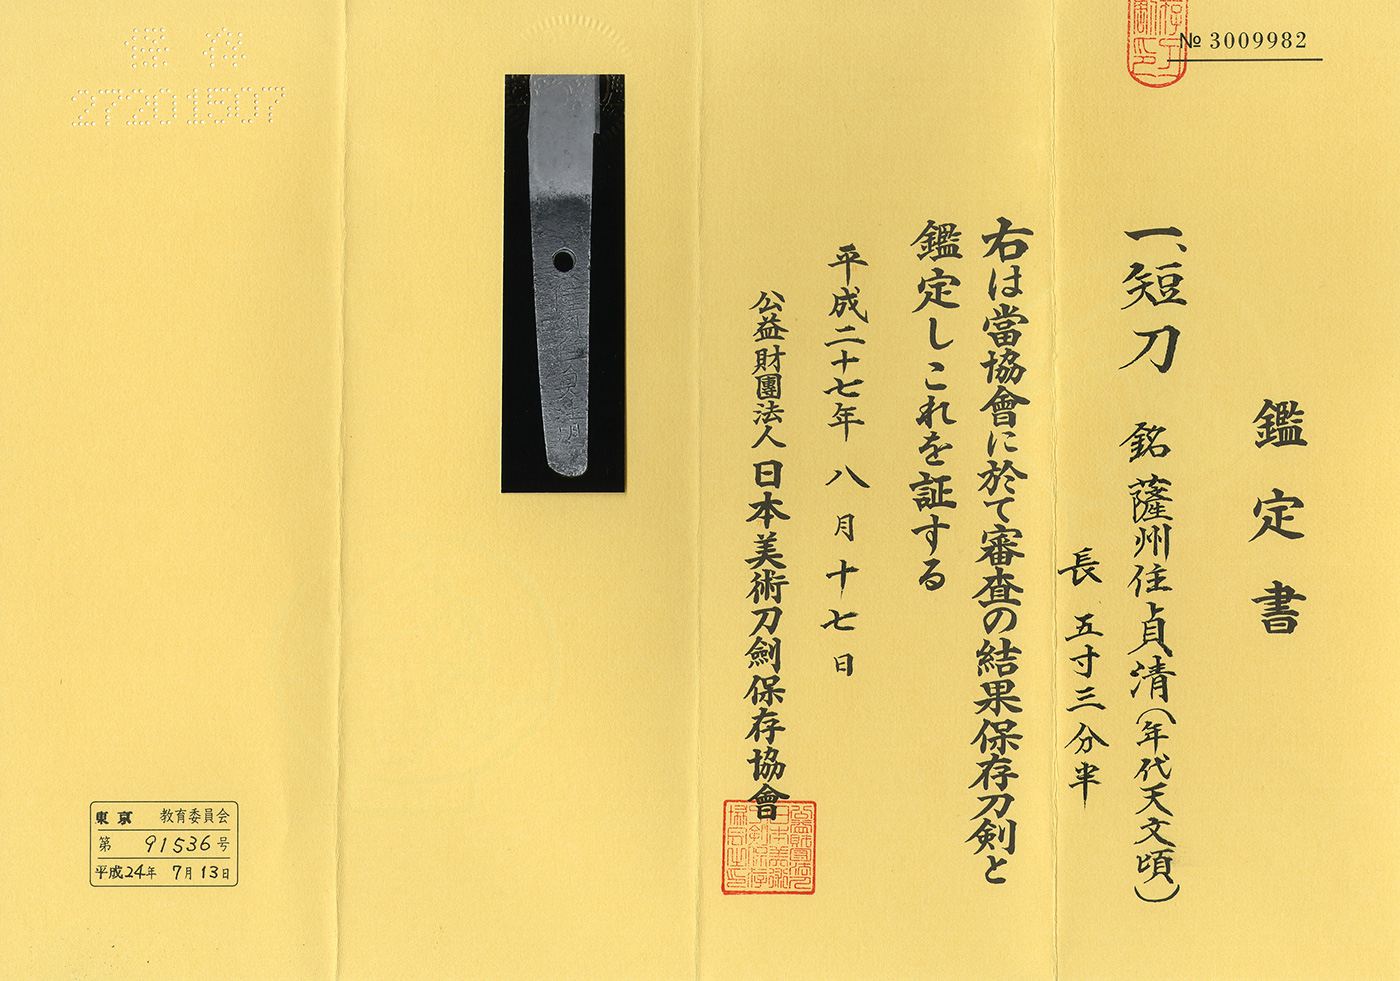 № 3009982
鑑定書
一、短刀 銘 薩州住貞清(年代天文頃)
長 五寸三分半
右は當協會に於て審査の結果保存刀剣と
鑑定しこれを証する
平成二十七年 八月十七日
公益財團法人 日本美術刀劍保存協會
保存
27201507
東京 教育委員会
第 91536 号
平成24年 7月13日